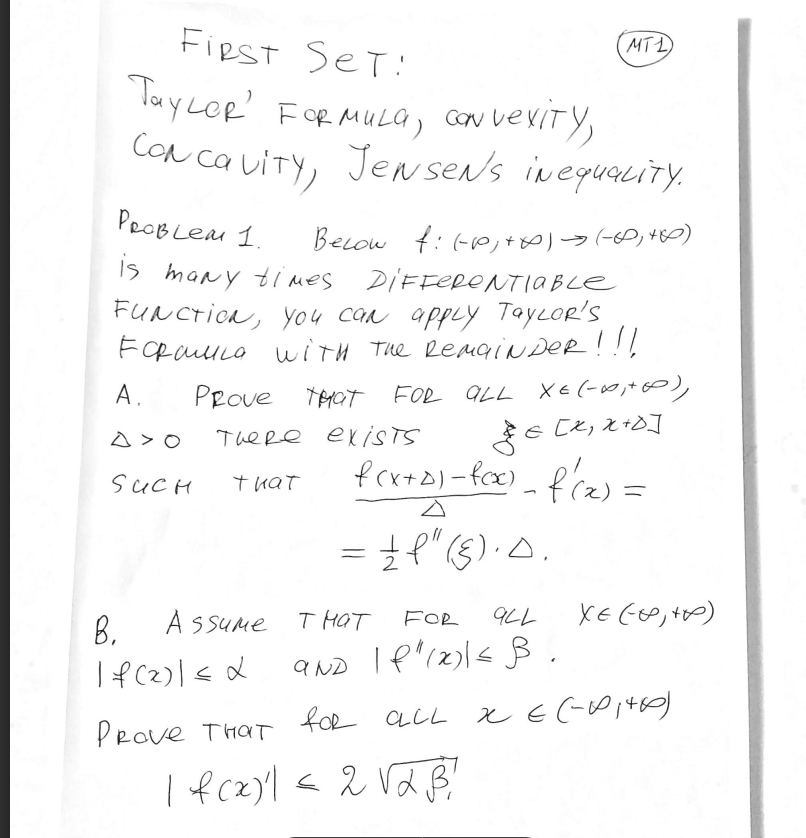 FIRST SET:
MT1
TAYLOR' FORMULA, CONVEXITY,
CONCAVITY, JENSEN'S INEQUALITY.
PROBLEM 1. BELOW f: (-∞, +∞) → (-∞, +∞)
is many times DIFFERENTIABLE
FUNCTION, you can apply TAYLOR'S
FORMULA WITH THE REMAINDER!!!
A. PROVE THAT FOR ALL x ∈ (-∞, +∞),
Δ > 0 THERE EXISTS ξ ∈ [x, x+Δ]
SUCH THAT (f(x+Δ) - f(x))/Δ - f'(x) =
= 1/2 f''(ξ) · Δ.
B. ASSUME THAT FOR ALL x ∈ (-∞, +∞)
|f(x)| ≤ α AND |f''(x)| ≤ β.
PROVE THAT for ALL x ∈ (-∞, +∞)
|f(x)'| ≤ 2 √αβ